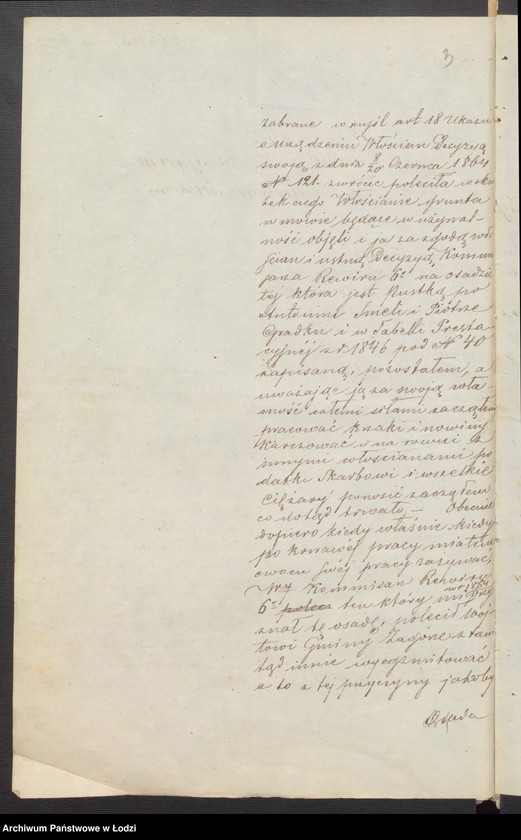 3
zabrane w myśl art 18 Ukazu
o urządzeniu Włościan Decyzyą
swoją z dnia 8/20 Czerwca 1864
N 121. zwrócić poleciła wsku
tek czego Włościanie grunta
w mowie będące w używal-
ność objęli i ja za zgodą wło
ścian i ustną Decyzyą Komim
jarza Rewiru 6º na osadzie
tej która jest Pustką po
Antonim i Piotrze
Gradku i w Tabelli Presta-
cyjnéj z r 1846 pod N 40
zapisaną, pozostałem, a
uważając ją za swoją wła-
sność całemi siłami zacząłem
pracować krzaki i nowiny
karczować i na równi z
innymi włościanami po
datki Skarbowi i wszelkie
Ciężary ponosić zacząłem
co dotąd trwało — Obecnie
dopiero kiedy właśnie kiedy
po krwawéj pracy miałem
owocu swój pracy zażywać,
Kommisarz Rewiru
6º ten który mi w r 1864 przy
znał tę osadę, polecił Wój
towi Gminy Zagórze z tam
tąd mnie wyexmitować
a to z tej przyczyny jakoby
Osada
Archiwum Państwowe w Łodzi